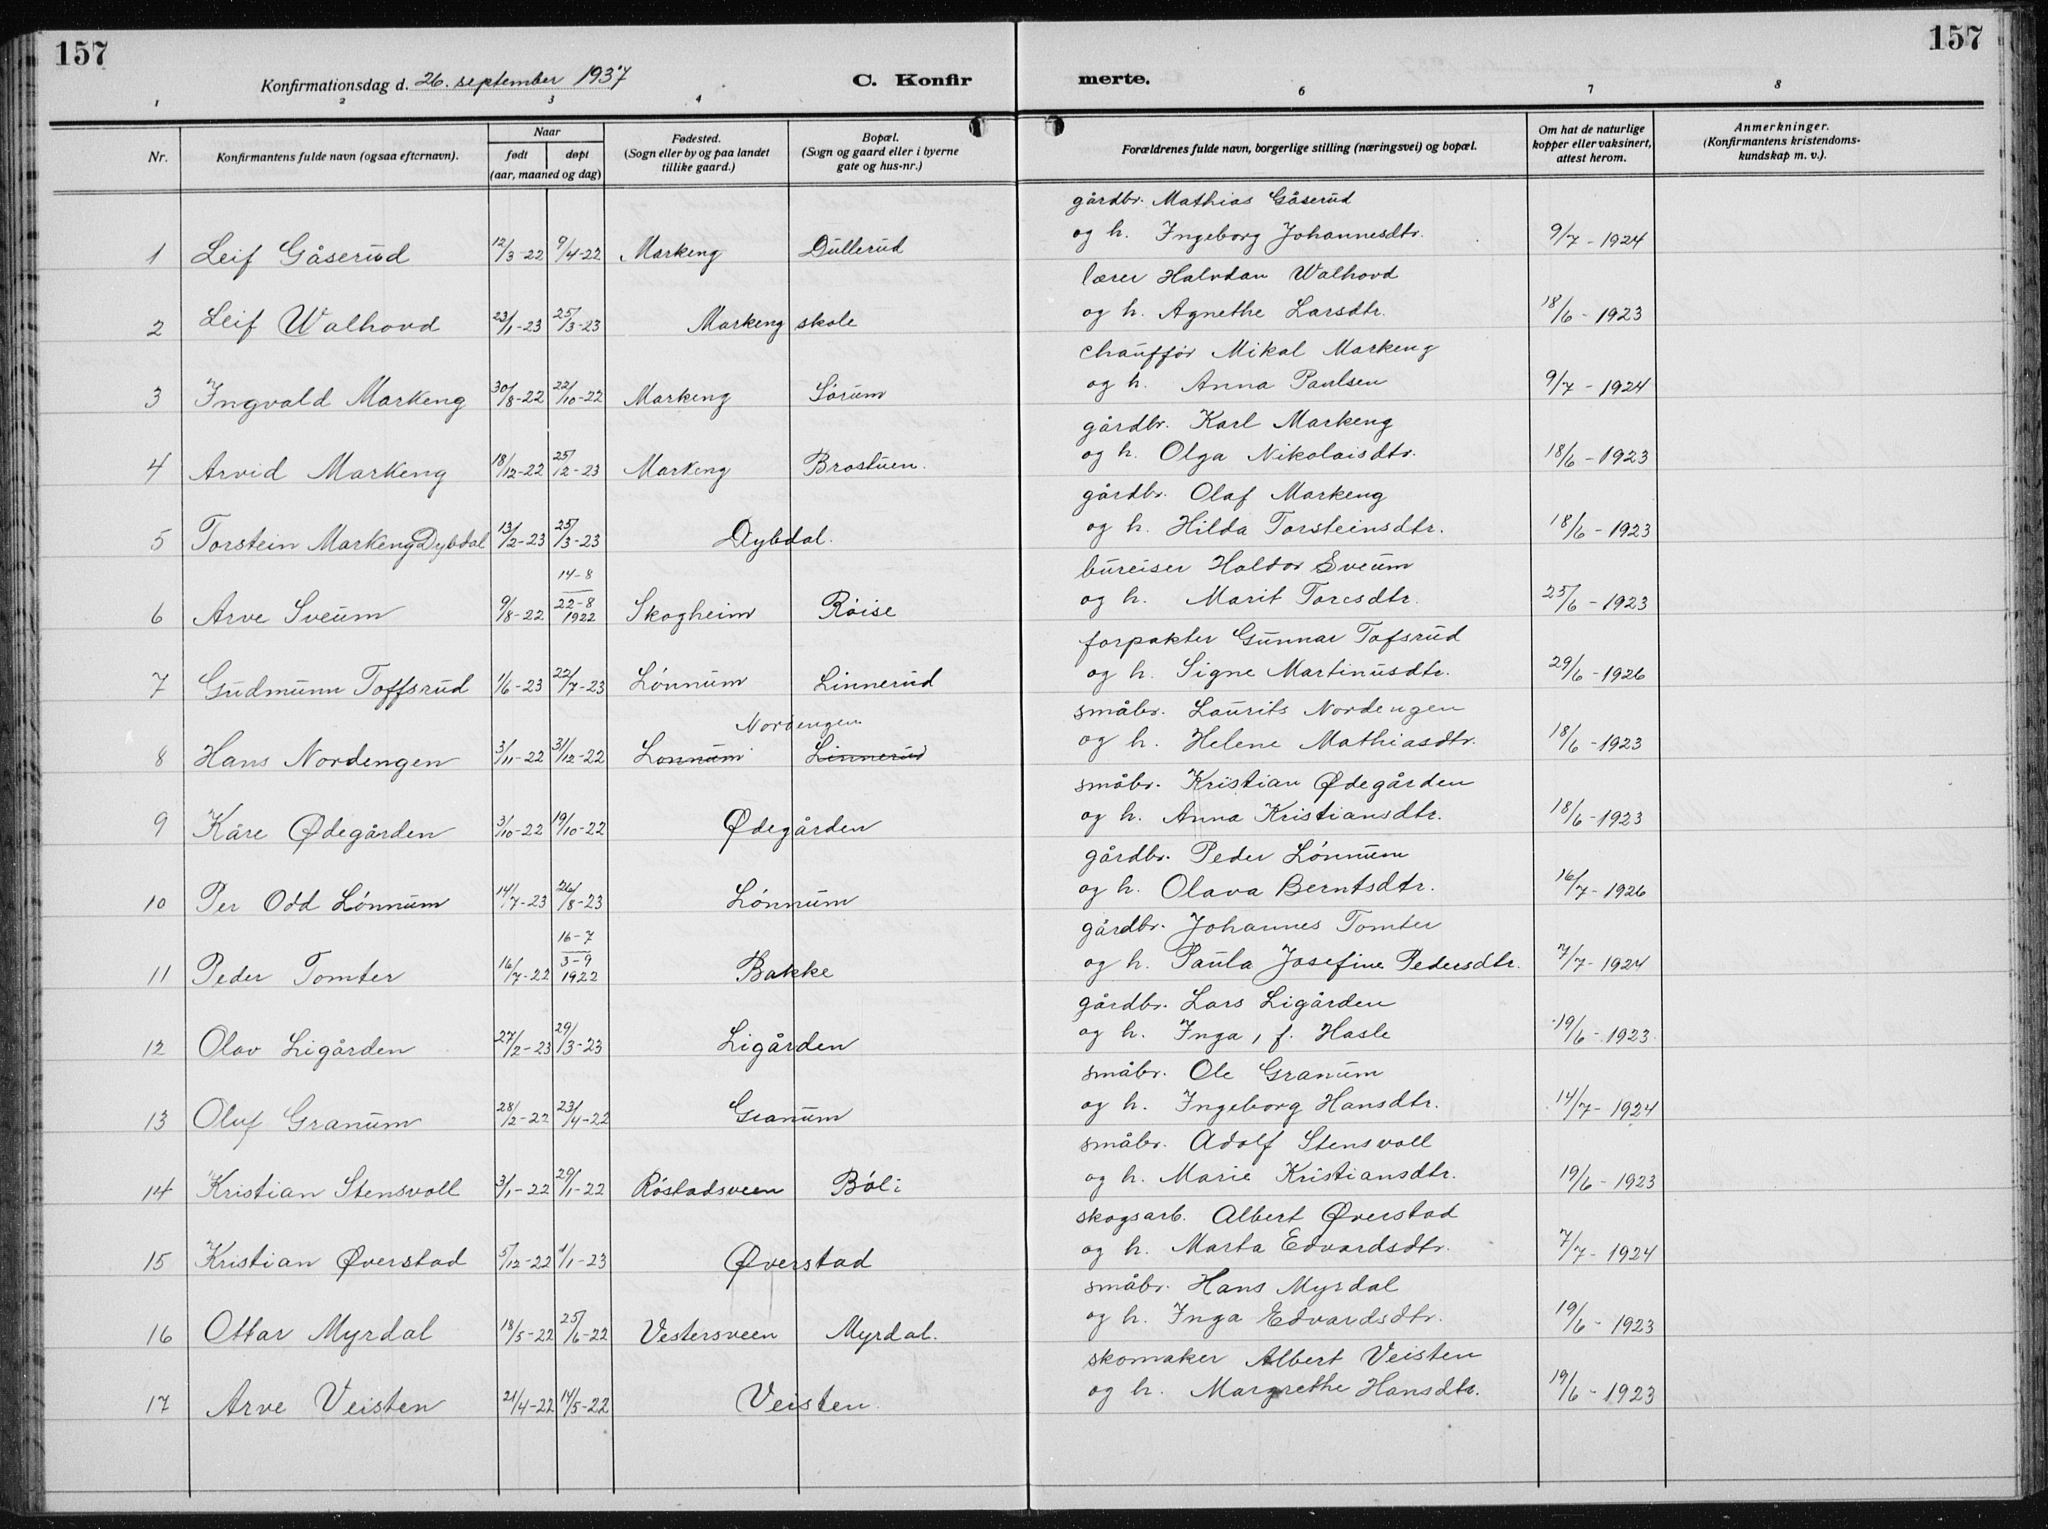 157
157
Konfirmationsdag d. 26. september 1937
C. Konfir
merte.
1 2 3 4 6 7 8
Nr.
Konfirmantens fulde navn (ogsaa efternavn).
Naar
født døpt
(aar, maaned og dag)
Fødested.
(Sogn eller by og paa landet
tillike gaard.)
Bopæl.
(Sogn og gaard eller i byerne
gate og hus-nr.)
Forældrenes fulde navn, borgerlige stilling (næringsvei) og bopæl.
Om hat de naturlige
kopper eller vaksinert,
attest herom.
Anmerkninger.
(Konfirmantens kristendoms-
kundskap m. v.).
gårdbr. Mathias Gåserud
1 Leif Gåserud 12/3-22 9/4-22 Markeng Dullerud og h. Ingeborg Johannesdtr. 9/7-1924
lærer Halvdan Walhovd
2 Leif Walhovd 23/1-23 25/3-23 Markeng skole og h. Agnethe Larsdtr. 18/6-1923
chauffør Mikal Markeng
3 Ingvald Markeng 30/8-22 22/10-22 Markeng Sørum og h. Anna Paulsen 9/7-1924
gårdbr. Karl Markeng
4 Arvid Markeng 18/12-22 25/12-23 Markeng Brostuen. og h. Olga Nikolaisdtr. 18/6-1923
gårdbr. Olaf Markeng
5 Torstein Markeng Dybdal 13/2-23 25/3-23 Dybdal. og h. Hilda Torsteinsdtr. 18/6-1923
14-8 bureiser Haldor Sveum
6 Arve Sveum 9/8-22 22-8 1922 Skogheim Røise og h. Marit Toresdtr. 25/6-1923
forpakter Gunnar Tofsrud
7 Gudmunn Toffsrud 1/6-23 22/7-23 Lønnum Linnerud og h. Signe Martinusdtr. 29/6-1926
Nordengen småbr. Laurits Nordengen
8 Hans Nordengen 3/11-22 31/12-22 Lonnum Linnerud og h. Helene Mathiasdtr. 18/6-1923
småbr. Kristian Ødegården
9 Kåre Ødegården 3/10-22 19/10-22 Ødegården og h. Anna Kristiansdtr. 18/6-1923
gårdbr. Peder Lønnum
10 Per Odd Lønnum 14/7-23 26/8-23 Lønnum og h. Olava Berntsdtr. 16/7-1926
16-7 gårdbr. Johannes Tomter
11 Peder Tomter 16/7-22 3-9 1922 Bakke og h. Paula Josefine Pedersdtr. 7/7-1924
gårdbr. Lars Ligården
12 Olav Ligården 27/2-23 29/3-23 Ligården og h. Inga, f. Hasle 19/6-1923
småbr. Ole Granum
13 Oluf Granum 28/2-22 23/4-22 Granum og h. Ingeborg Hansdtr. 14/7-1924
småbr. Adolf Stensvoll
14 Kristian Stensvoll 3/1-22 29/1-22 Røstadsveen Bøli og h. Marie Kristiansdtr. 19/6-1923
skogsarb. Albert Øverstad
15 Kristian Øverstad 5/12-22 1/1-23 Øverstad og h. Marta Edvardsdtr. 7/7-1924
småbr. Hans Myrdal
16 Ottar Myrdal 18/5-22 25/6-22 Vestersveen Myrdal. og h. Inga Edvardsdtr. 19/6-1923
skomaker Albert Veisten
17 Arve Veisten 21/4-22 14/5-22 Veisten og h. Margrethe Hansdtr. 19/6-1923